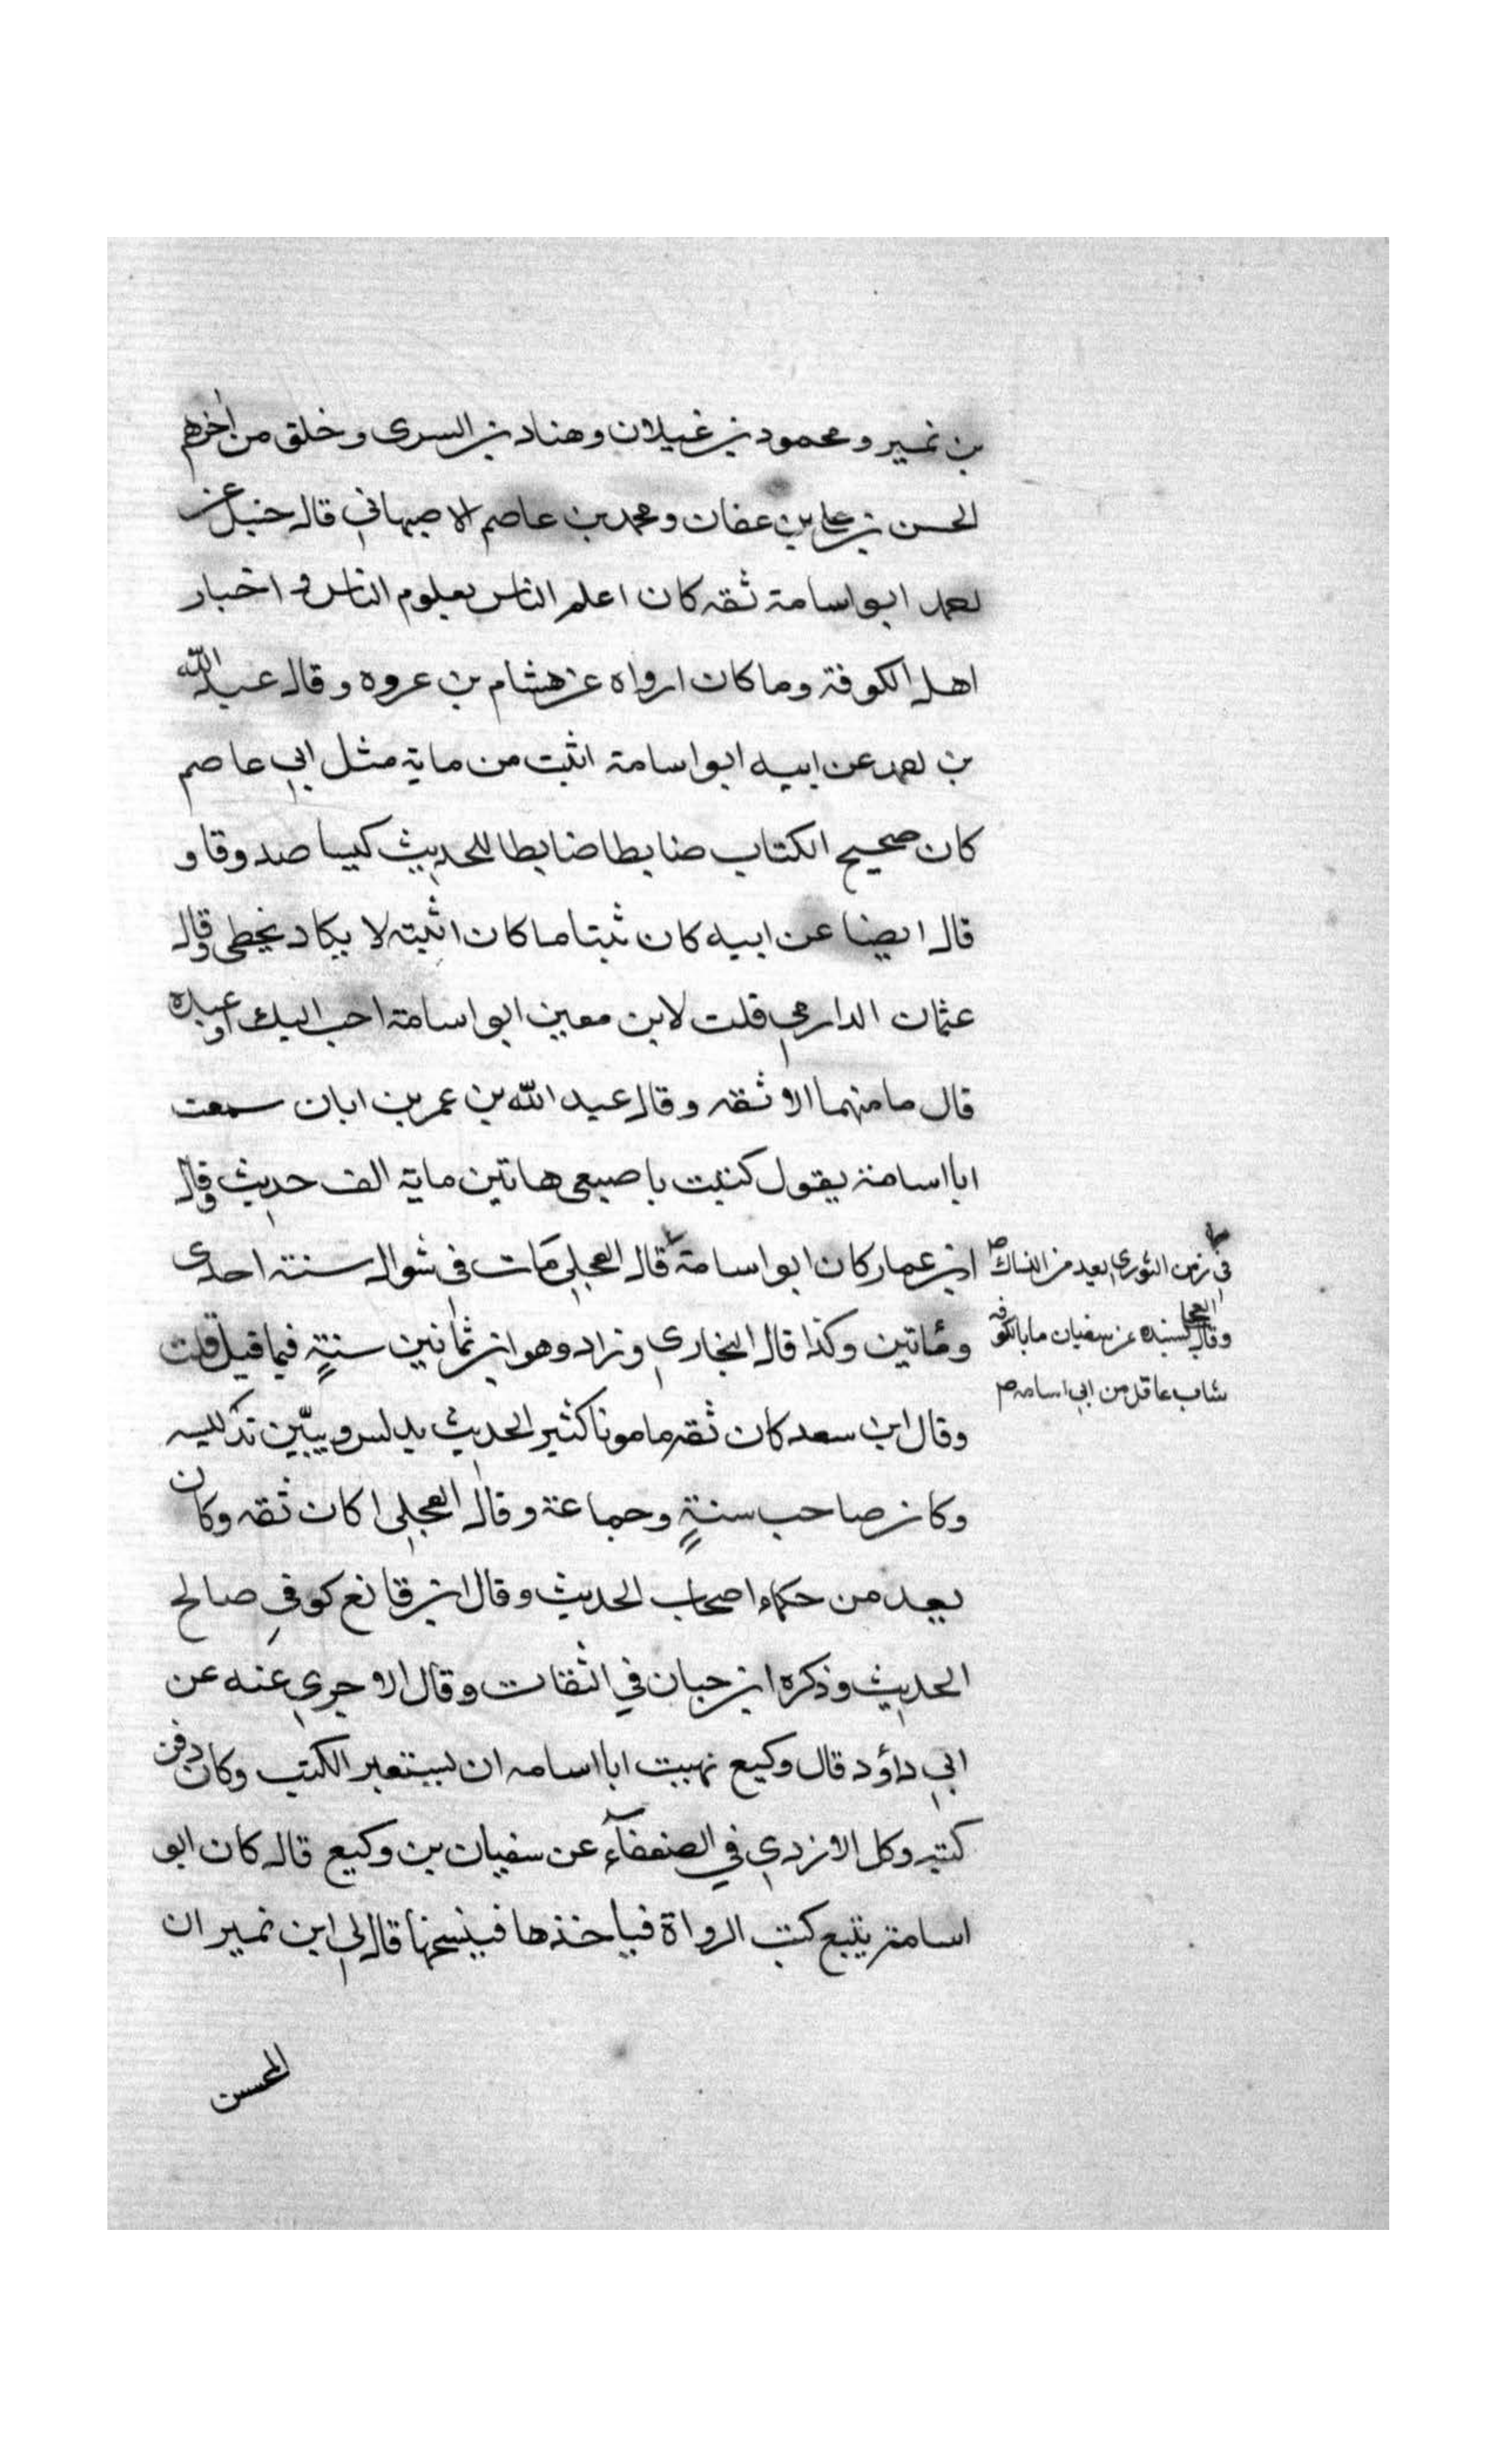 بن نمير ومحمود بن غيلان وهناد بن السرى وخلق من اخرهم
الحسن بن على بن عفان ومحمد بن عاصم الاصبهاني قال حنبل عن
احمد ابو اسامة ثقه كان اعلم الناس بعلوم الناس و اخبار
اهل الكوفة وما كان ارواه عن هشام بن عروه وقال عبد الله
بن احمد عن ابيه ابو اسامة اثبت من ماية مثل ابي عاصم
كان صحيح الكتاب ضابطا ضابطا للحديث كيسا صدوقا و
قال ايضا عن ابيه كان ثبتا ما كان اثبته لا يكاد يخطى وقال
عثمان الدارمي قلت لابن معين ابو اسامة احب اليك او عبده
قال ما منهما الا ثقه وقال عبد الله بن عمر بن ابان سمعت
ابا اسامة يقول كتبت باصبعي هاتين ماية الف حديث وقال
ابن عمار كان ابو اسامة قال العجلي مات في شوال سنة احدى
في زمن الثوري يعد من النساك
ومأتين وكذا قال البخاري وزاد وهو ابن ثمانين سنةٍ فيما قيل قلت
وقال العجلي بسنده عن سفيان ما بالكوفه
شاب عاقل من ابي اسامه
وقال ابن سعد كان ثقه مامونا كثير الحديث يدلس ويبيّن تدليسه
وكان صاحب سنةٍ وجماعة وقال العجلي كان ثقه وكان
يعد من حكماء اصحاب الحديث وقال ابن قانع كوفي صالح
الحديث وذكره ابن حبان في الثقات وقال الاجري عنه عن
ابي داؤد قال وكيع نهيت ابا اسامه ان يستعير الكتب وكان دفن
كتبه وكل الازدي في الضعفآء عن سفيان بن وكيع قال كان ابو
اسامة يتبع كتب الرواة فياخذها فينسخها قال لي ابن نمير ان
المحسن